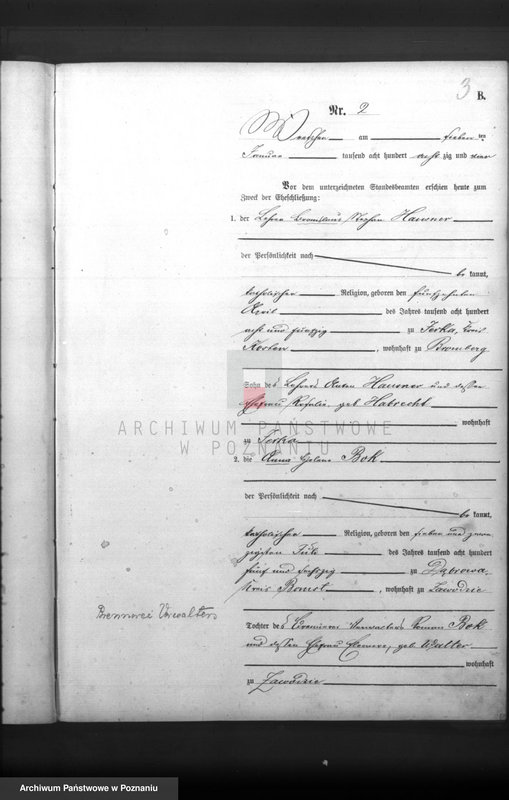 3 B.
Nr. 2
Wreschen am sieben ten
Januar tausend acht hundert acht zig und vier
Vor dem unterzeichneten Standesbeamten erschien heute zum
Zweck der Eheschließung:
1. der Lehrer Bronislaus Stephan Hausner
der Persönlichkeit nach
be kannt,
katholischer Religion, geboren den fünfzehnten
April des Jahres tausend acht hundert
acht und fünfzig zu Jerka, Kreis
Kosten, wohnhaft zu Bromberg
Sohn des Lehrers Anton Hausner und dessen
Ehefrau Rosalie geb Habrecht
wohnhaft
zu Jerka
2. die Anna Helene Bok
der Persönlichkeit nach
be kannt,
katholischer Religion, geboren den sieben und zwan
zigsten Juli des Jahres tausend acht hundert
fünf und sechszig zu Dąbrowa,
Kreis Bomst, wohnhaft zu Zawodzie
Brennerei Verwalters
Tochter des Verwalters Roman Bok
und dessen Ehefrau geb. Walter
wohnhaft
zu Zawodzie
ARCHIWUM PAŃSTWOWE
W POZNANIU
Archiwum Państwowe w Poznaniu